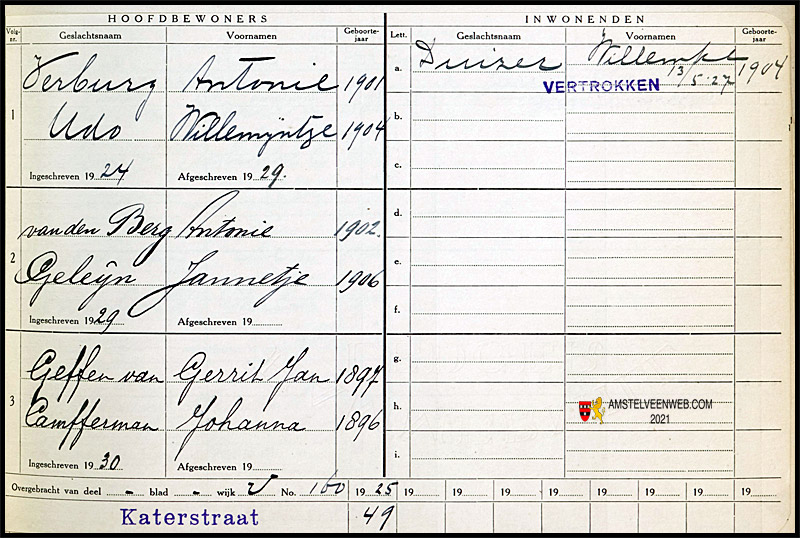 HOOFDBEWONERS
Volg-nr. Geslachtsnaam Voornamen Geboorte-jaar
1 Verburg Antonie 1901
Udo Willemijntje 1904
Ingeschreven 1924 Afgeschreven 1929.
2 van den Berg Antonie 1902.
Geleijn Jannetje 1906
Ingeschreven 1929 Afgeschreven 19
3 Geffen van Gerrit Jan 1897
Campfferman Johanna 1896
Ingeschreven 1930
INWONENDEN
Lett. Geslachtsnaam Voornamen Geboorte-jaar
a. Duizer Willempje 1904
VERTROKKEN 13/5 '27
b.
c.
d.
e.
f.
g.
h.
i.
AMSTELVEENWEB.COM
2021
Overgebracht van deel - blad - wijk V No. 160 1925 19 19 19 19 19 19 19 19
Katerstraat 49